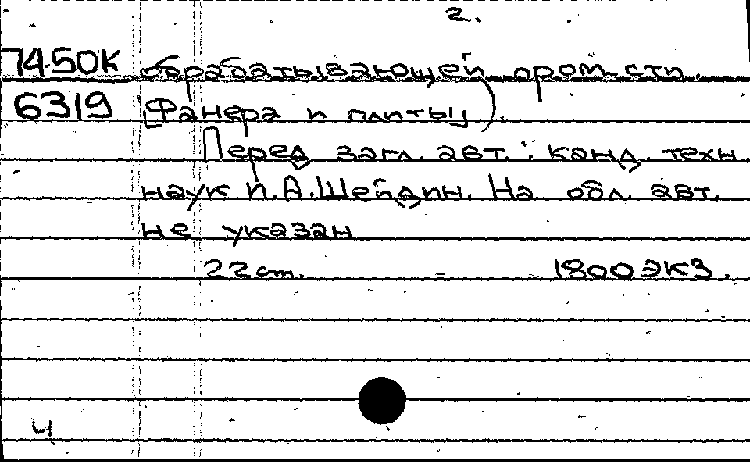 2.
74-50К обрабатывающей пром-сти.
6319 [Фанера и плиты]).
Перед загл. авт.: канд. техн.
наук И.А.Шейдин. На обл. авт.
не указан
22 cm. - 1800 экз.
Ч